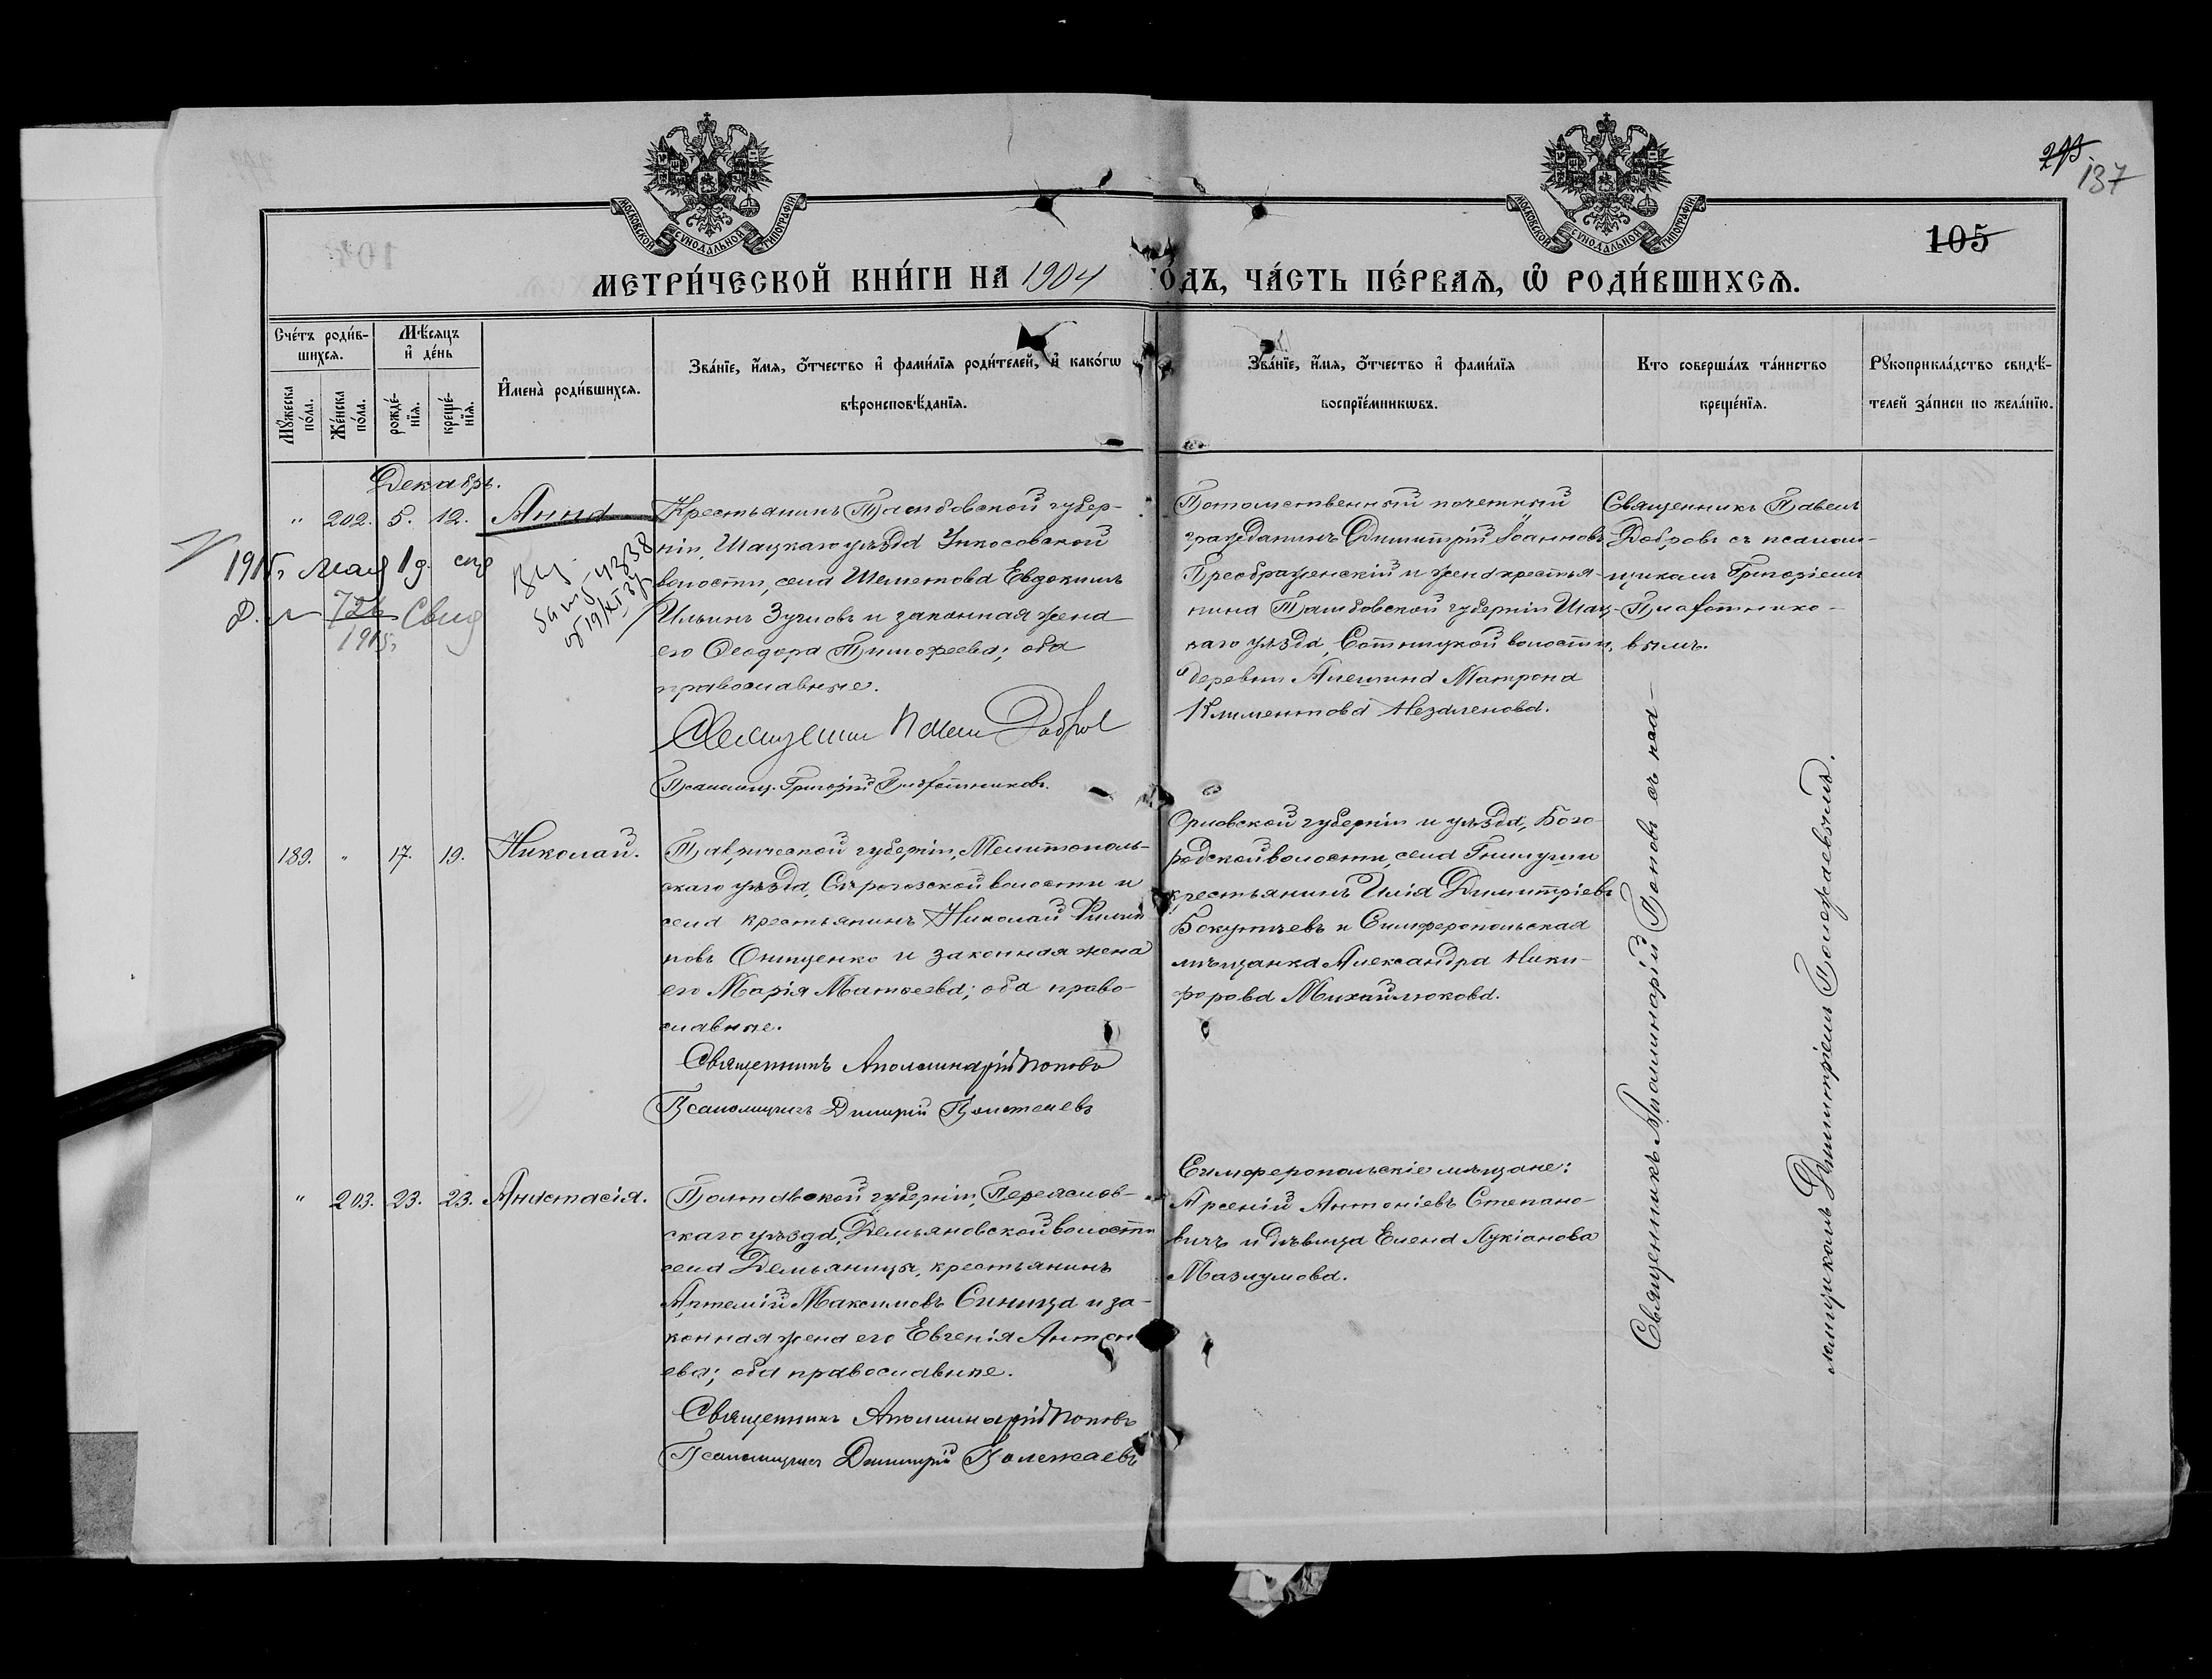 137
105
МОСКОВСКОЙ СѴНОДАЛЬНОЙ ТИПОГРАФІИ
МОСКОВСКОЙ СѴНОДАЛЬНОЙ ТИПОГРАФІИ
МЕТРИ́ЧЕСКОЙ КНИ́ГИ НА 1904 ГО́ДЪ, ЧА́СТЬ ПЕ́РВАЯ, Ѡ҃ РОДИ́ВШИХСЯ.
Сче́тъ роди́в-
шихся.
Мѣ́сяцъ
и҆ де́нь
Мꙋ́жеска по́ла.
Же́нска по́ла.
рожде́-нїя.
креще́-нїя.
И҆мена̀ роди́вшихся.
Зва́нїе, и҆́мя, ѻ҆́тчество и҆ фами́лїя роди́телей, и҆ како́гѡ
вѣроисповѣ́данїя.
Зва́нїе, и҆́мя, ѻ҆́тчество и҆ фами́лїя
воспрїе́мникѡвъ.
Кто соверша́лъ та́инство
креще́нїя.
Рꙋкоприкла́дство свидѣ́-
телей за́писи по жела́нїю.
Декабрь.
" 202. 5. 12. Анна
Крестьянинъ Тамбовской губер-
ніи, Шацкаго уѣзда Инкосовской
волости, села Шеметова Евдокимъ
Ильинъ Зучловъ и законная жена
его Ѳеодора Тимофеева; оба
православные.
Псаломщ. Григорій Плахотниковъ.
1915 г. мая 19
726
1915 г.
Свид
Потомственный почетный
гражданинъ Димитрій Іоанновъ
Преображенскій и жена крестья-
нина Тамбовской губерніи Шац-
каго уѣзда, Сотницкой волости,
деревни Алешина Матрона
Климентова Незаленова.
Священникъ Павелъ
Добровъ съ псалом-
щикомъ Григоріемъ
Плахотнико-
вымъ.
189. " 17. 19. Николай.
Таврической губерніи, Мелитополь-
скаго уѣзда, Сѣрогозской волости и
села крестьянинъ Николай Филип
повъ Онищенко и законная жена
его Марія Матвеева; оба право-
славные.
Священникъ Аполлинарій Поповъ
Псаломщикъ Димитрій Полежаевъ
Орловской губерніи и уѣзда, Бого-
родской волости, села Гнилуши
крестьянинъ Илія Димитріевъ
Бокутчевъ и Симферопольская
мѣщанка Александра Ники-
форова Михайлюкова.
" 203. 23. 23. Анастасія.
Полтавской губерніи, Переяслов-
скаго уѣзда, Демьяновской волости
села Демьянцы, крестьянинъ
Артемій Максимовъ Синица и за-
конная жена его Евгенія Антон
ева; оба православные.
Священникъ Аполлинарій Поповъ
Псаломщикъ Димитрій Полежаевъ
Симферопольскіе мѣщане:
Арсеній Антоніевъ Степано-
вичъ и дѣвица Елена Лукіанова
Мазлумова.
Священникъ Аполлинарій Поповъ съ пса-
ломщикомъ Димитріемъ Полежаевымъ.